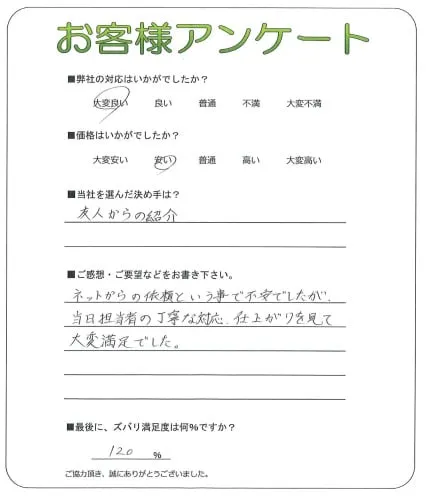 お客様アンケート
■弊社の対応はいかがでしたか？
大変良い 良い 普通 不満 大変不満
■価格はいかがでしたか？
大変安い 安い 普通 高い 大変高い
■当社を選んだ決め手は？
友人からの紹介
■ご感想・ご要望などをお書き下さい。
ネットからの依頼という事で不安でしたが、
当日担当者の丁寧な対応、仕上がりを見て
大変満足でした。
■最後に、ズバリ満足度は何%ですか？
120 %
ご協力頂き、誠にありがとうございました。